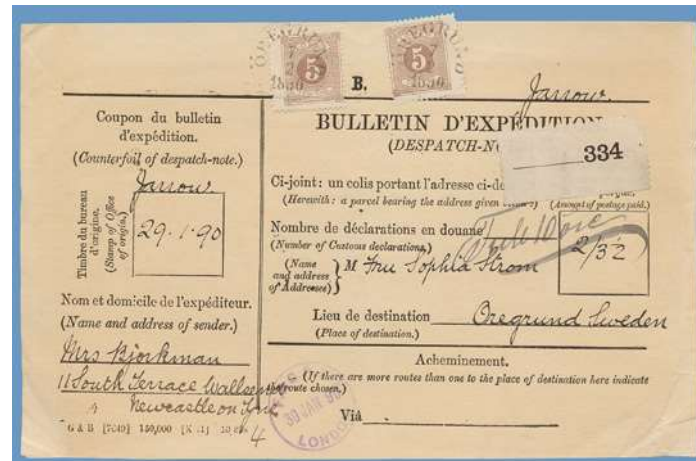 ÖREGRUND
1890
5
ÖREGRUND
1890
5
B.
Jarrow.
Coupon du bulletin
d'expédition.
(Counterfoil of despatch-note.)
Jarrow.
Timbre du bureau
d'origine.
(Stamp of Office
of origin.)
29.1.90
Nom et domicile de l'expéditeur.
(Name and address of sender.)
Mrs Bjorkman
11 South Terrace
Newcastle on Tyne
G & B
4
BULLETIN D'EXPÉDITION
(DESPATCH-NO
334
Ci-joint: un colis portant l'adresse ci-de
(Herewith: a parcel bearing the address given
(Amount of postage paid.)
Nombre de déclarations en douane
(Number of Customs declarations,)
2/32
(Name
and address
of Addressee)
M Fru Sophia Strom
Lieu de destination Oregrund Sweden
(Place of destination.)
Acheminement.
(If there are more routes than one to the place of destination here indicate
the route chosen.)
30 JAN 90
LONDON
Viâ